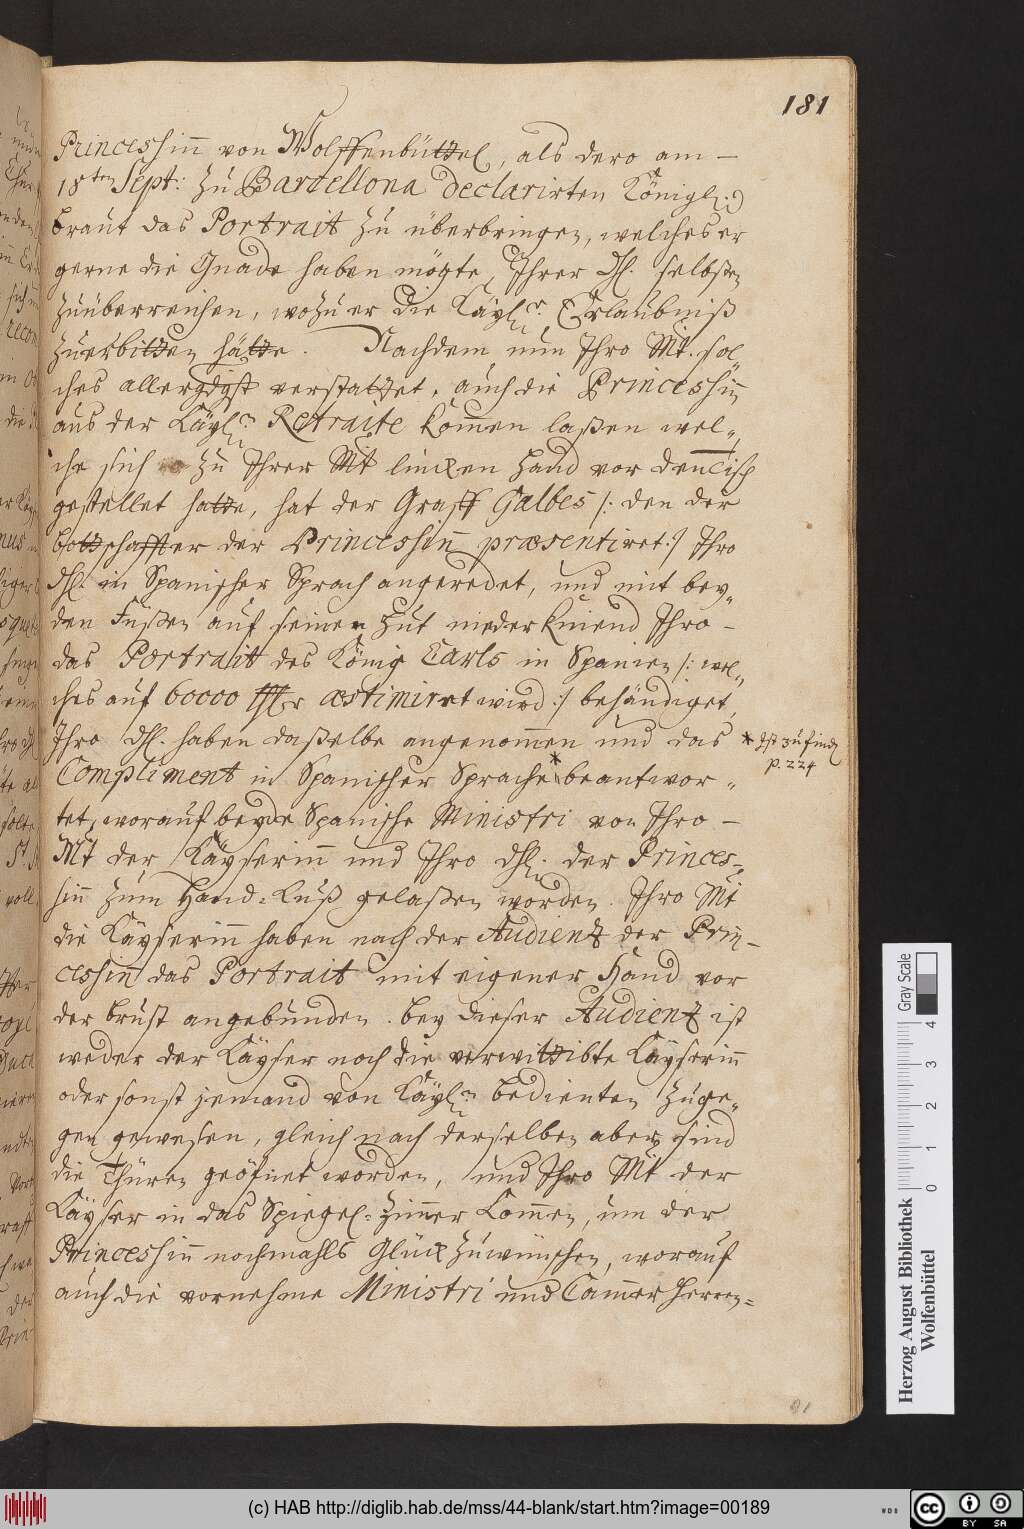 181
Princessinn von Wolffenbüttel, als dero am –
18ten Sept: Zu Barcellona declarirten Königl:n
braut das Portrait zu überbringen, welches er
gerne die Gnade haben mögte, Ihrer Dl. selbsten
zuüberreichen, wozu er die Käyl.r Erlaubniß
zuerbitten hätte. Nachdem nun Ihro Mt. sol„
ches allergdgst verstattet, auch die Princessinn
aus der Käyl.n Retraite kommen laßen wel„
che sich zu Ihrer Mt lincken Hand vor den Tisch
gestellet hatte, hat der Graff Galbes /: den der
bottschaffter der Princessinn præsentiret :/ Ihro
Dhl. in Spanischer Sprach angeredet, und mit bey„
den Füßen auf seinen Hut niederkniend Ihro –
das Portrait des König Carls in Spanien /: wel„
ches auf 60000 Thlr æstimiret wird :/ behändiget,
Ihro Dhl. haben daßelbe angenommen und das
* ist zu finden
p. 224
Compliment in Spanischer Sprache * beantwor„
tet, worauf beyde Spanische Ministri von Ihro –
Mt der Käyserinn und Ihro Dhl. der Princes„
sinn zum Hand=Kuß gelaßen worden. Ihro Mt
die Käyserinn haben nach der Audientz der Prin–
cessinn das Portrait mit eigener Hand vor
der brust angebunden. bey dieser Audientz ist
weder der Käyser noch die verwittibte Käyserinn
oder sonst jemand von Käyl.n bedienten zuge„
gen gewesen, gleich nach derselben aber sind
die Thüren geöfnet worden, und Ihro Mt der
Käyser in das Spiegel=Zimmer kommen, um der
Princessin nochmahls Glück zuwünschen, worauf
auch die vornehme Ministri und Cammer Herren=
Gray Scale
0 1 2 3 4
Herzog August Bibliothek
Wolfenbüttel
(c) HAB http://diglib.hab.de/mss/44-blank/start.htm?image=00189
WDB
cc BY SA